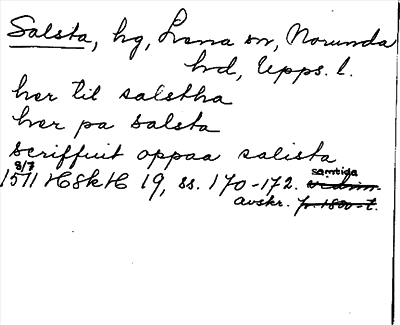 Salsta, hg, Lena sn, Norunda
hd, Upps. l.
her til salstha
her pa salsta
scriffuit oppaa salista
8/7
1571 HSkH 19, ss. 170-172. samtida
avskr.